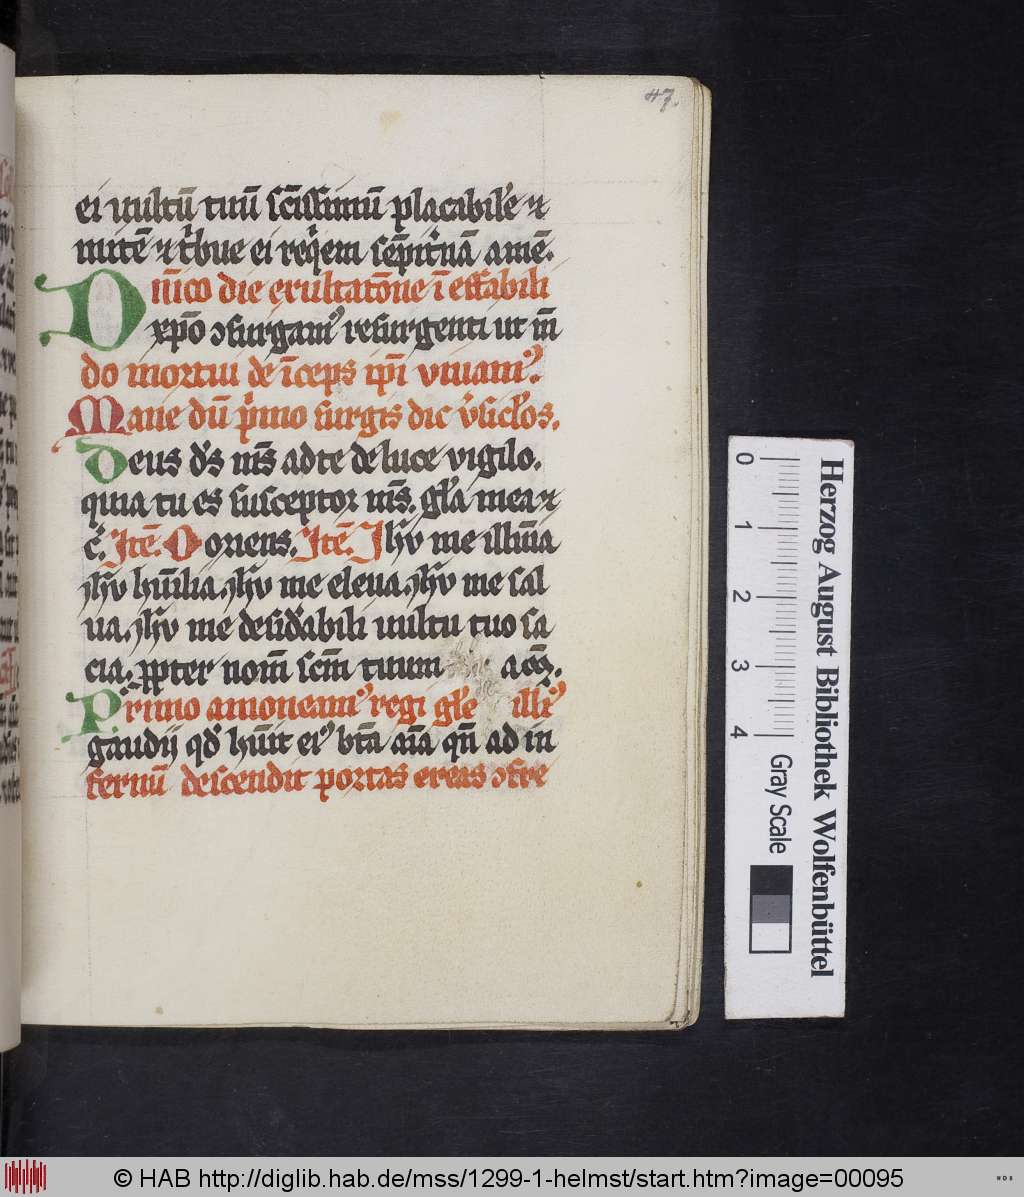 47.
ei uultū tuū sc̄issimū placabilē ⁊
mitē ⁊ t͛bue ei req͛em sēpit͛nā amē.
Dn̄ico die exultatōne īeffabili
xp̄o ꝯsurgam᷒ resurgenti ut m̄
do mortui deīceps ip̄i viuam᷒.
Mane dū p͛mo surgis dic v͛sicl̓os.
Deus d̓s m̄s ad te de luce vigilo.
quia tu es susceptor m̄s. gl̓a mea ⁊
c̄. Itē. Oriens. Itē. Ihū me illūia
ihū hūilia. ihū me eleua. ihū me sal
ua. ihū me desid̓abili uultu tuo sa
cia. ꝓpter nom̄ sc̄m tuum
Primo amoneam᷒ regi gl̓e illi᷒
gaudij qd̓ hūit ei᷒ bt̄a aīa qn̄ ad in
fernū descendit portas ereas ꝯfre
Herzog August Bibliothek Wolfenbüttel
0 1 2 3 4
Gray Scale
© HAB http://diglib.hab.de/mss/1299-1-helmst/start.htm?image=00095